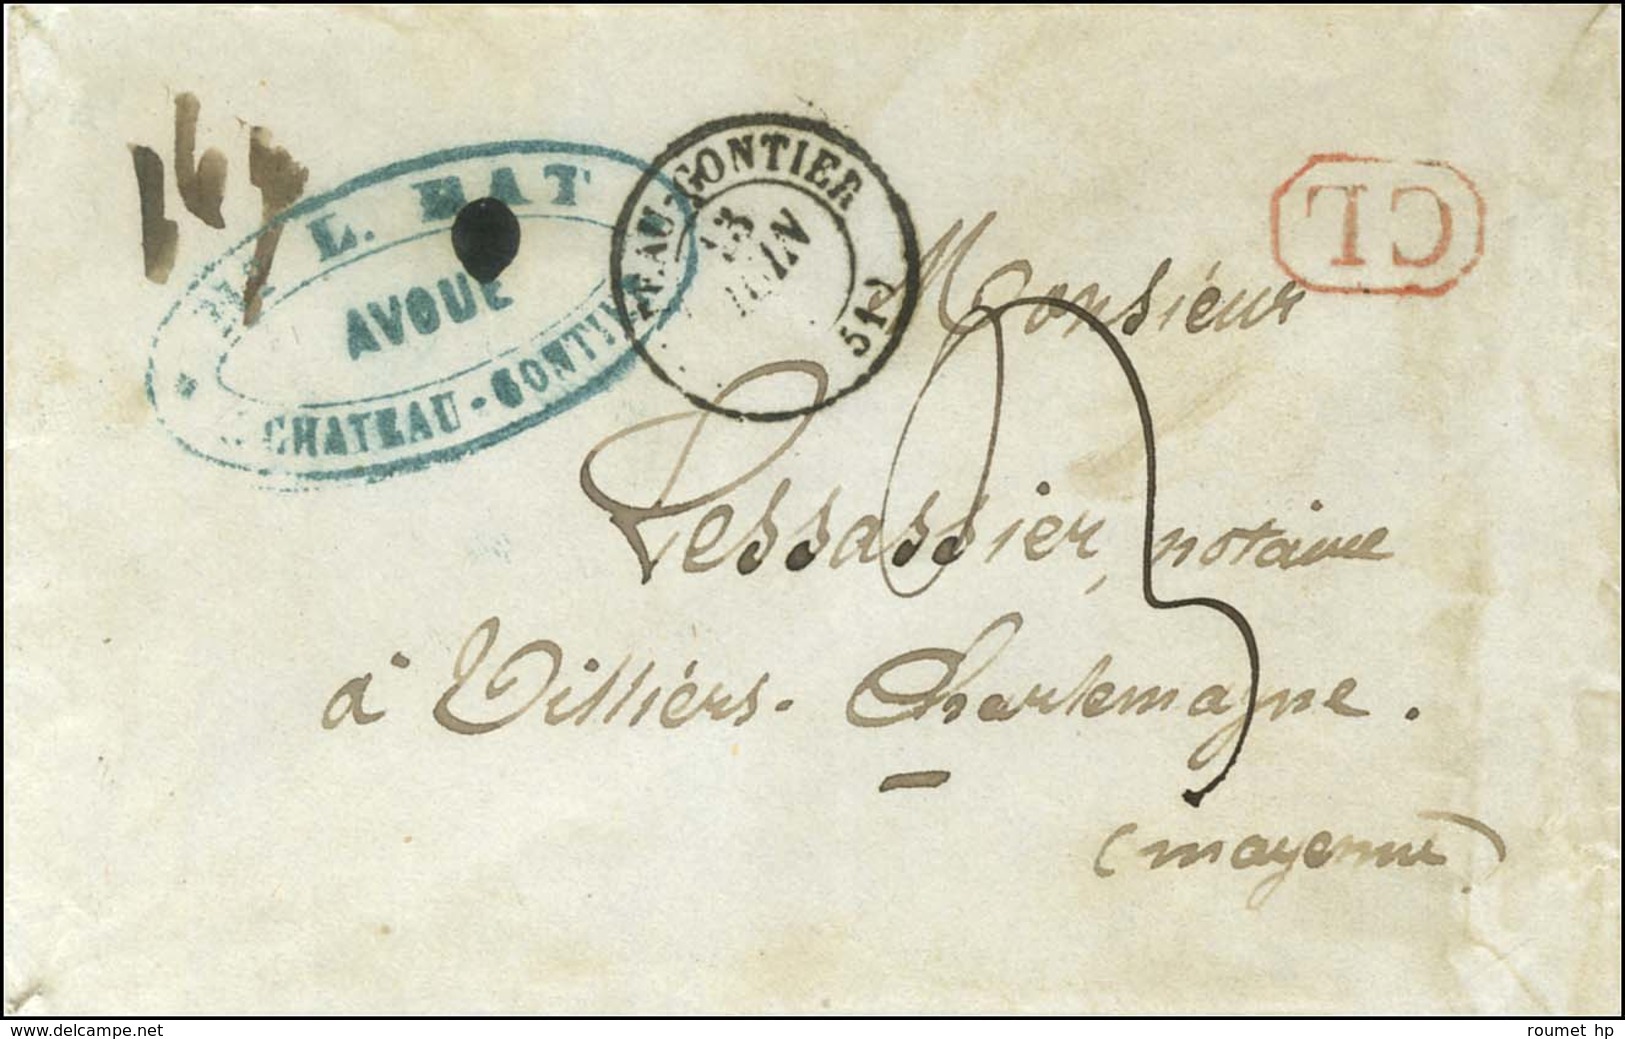 L. HAT
AVOUÉ
CHATEAU-GONTIER
EAU-GONTIER
13
JUIN
51
CL
Monsieur
Lessassier, notaire
à Villiérs-Charlemagne.
(mayenne)
www.delcampe.net
roumet hp